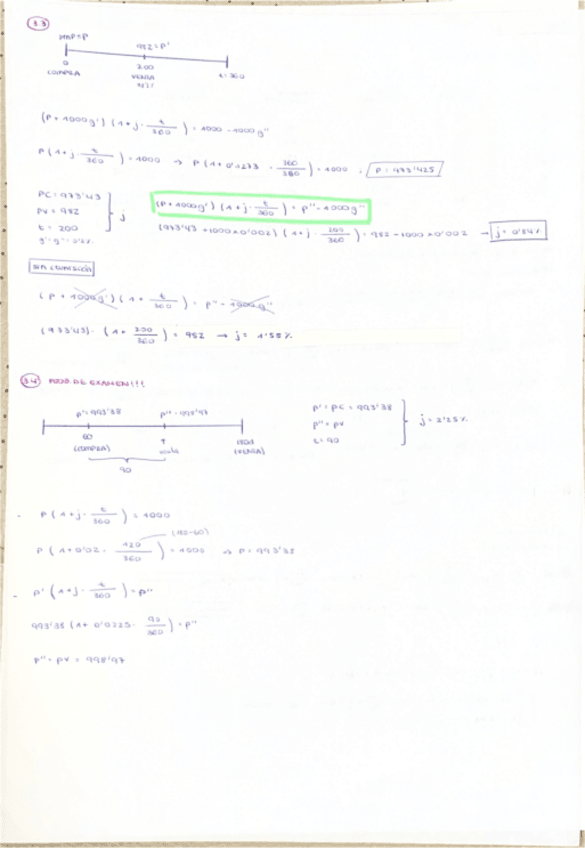 3.3
982 = P'
0 200 t = 360
COMPRA VENTA
(P + 1000g') (1 + j · t/360) = 1000 - 1000g''
P (1 + j · t/360) = 1000 → P (1 + 0'0273 · 360/360) = 1000 , P = 973'425
PC = 973'43
PV = 982
t = 200
j
(P + 1000g') (1 + j · t/360) = P'' - 1000g''
(973'43 + 1000 x 0'002) (1 + j · 200/360) = 982 - 1000 x 0'002 → j = 0'84%
SIN COMISIÓN
(P + 1000g') (1 + t/360) = P'' - 1000g''
(973'43) · (1 + 200/360) = 982 → j = 1'58%
3.4 EXAMEN!!!
P' = 993'38 P'' = 998'97
60
(COMPRA) venta (VENTA)
90
P' = PC = 993'38
P'' = PV
t = 90
j = 2'25%
- P (1 + j · t/360) = 1000
(180-60)
P (1 + 0'02 · 120/360) = 1000 → P = 993'38
- P' (1 + j · t/360) = P''
993'38 (1 + 0'0225 · 90/360) = P''
P'' = PV = 998'97